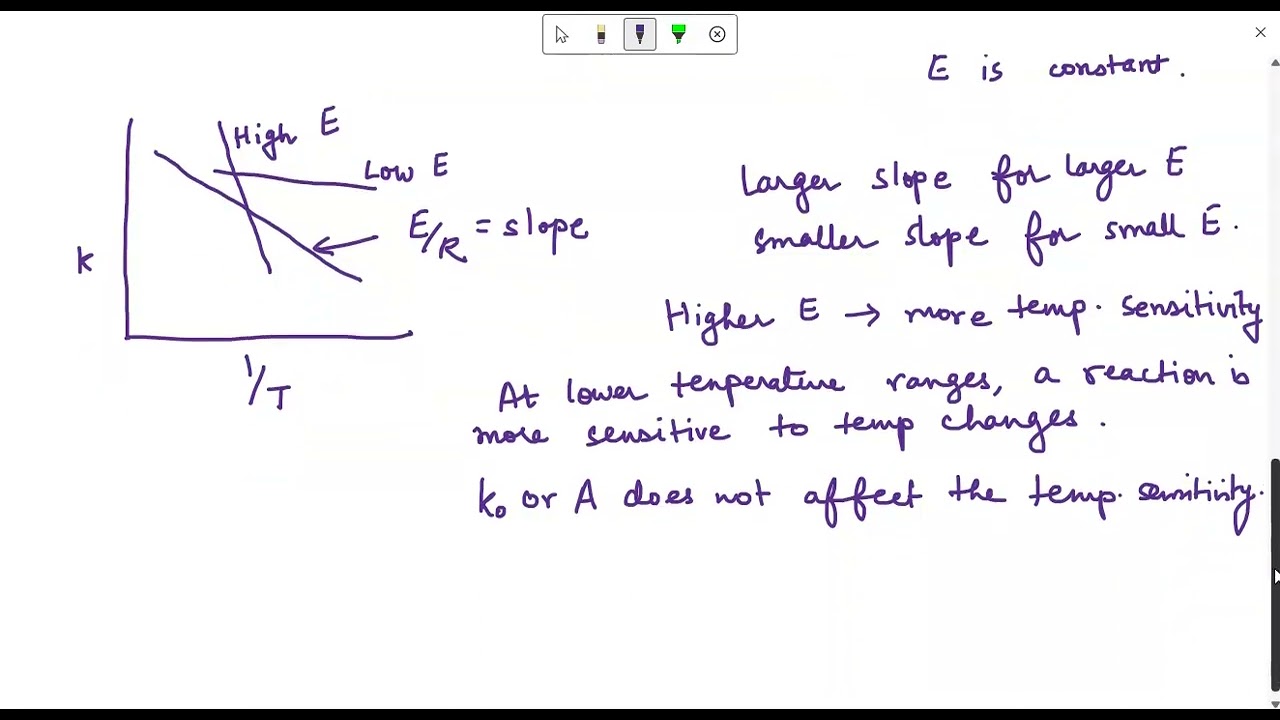 E is constant.
High E
Low E
E/R = slope
k
1/T
Larger slope for larger E
smaller slope for small E.
Higher E → more temp. sensitivity
At lower tenperature ranges, a reaction is
more sensitive to temp changes.
k₀ or A does not affect the temp. sensitivity.